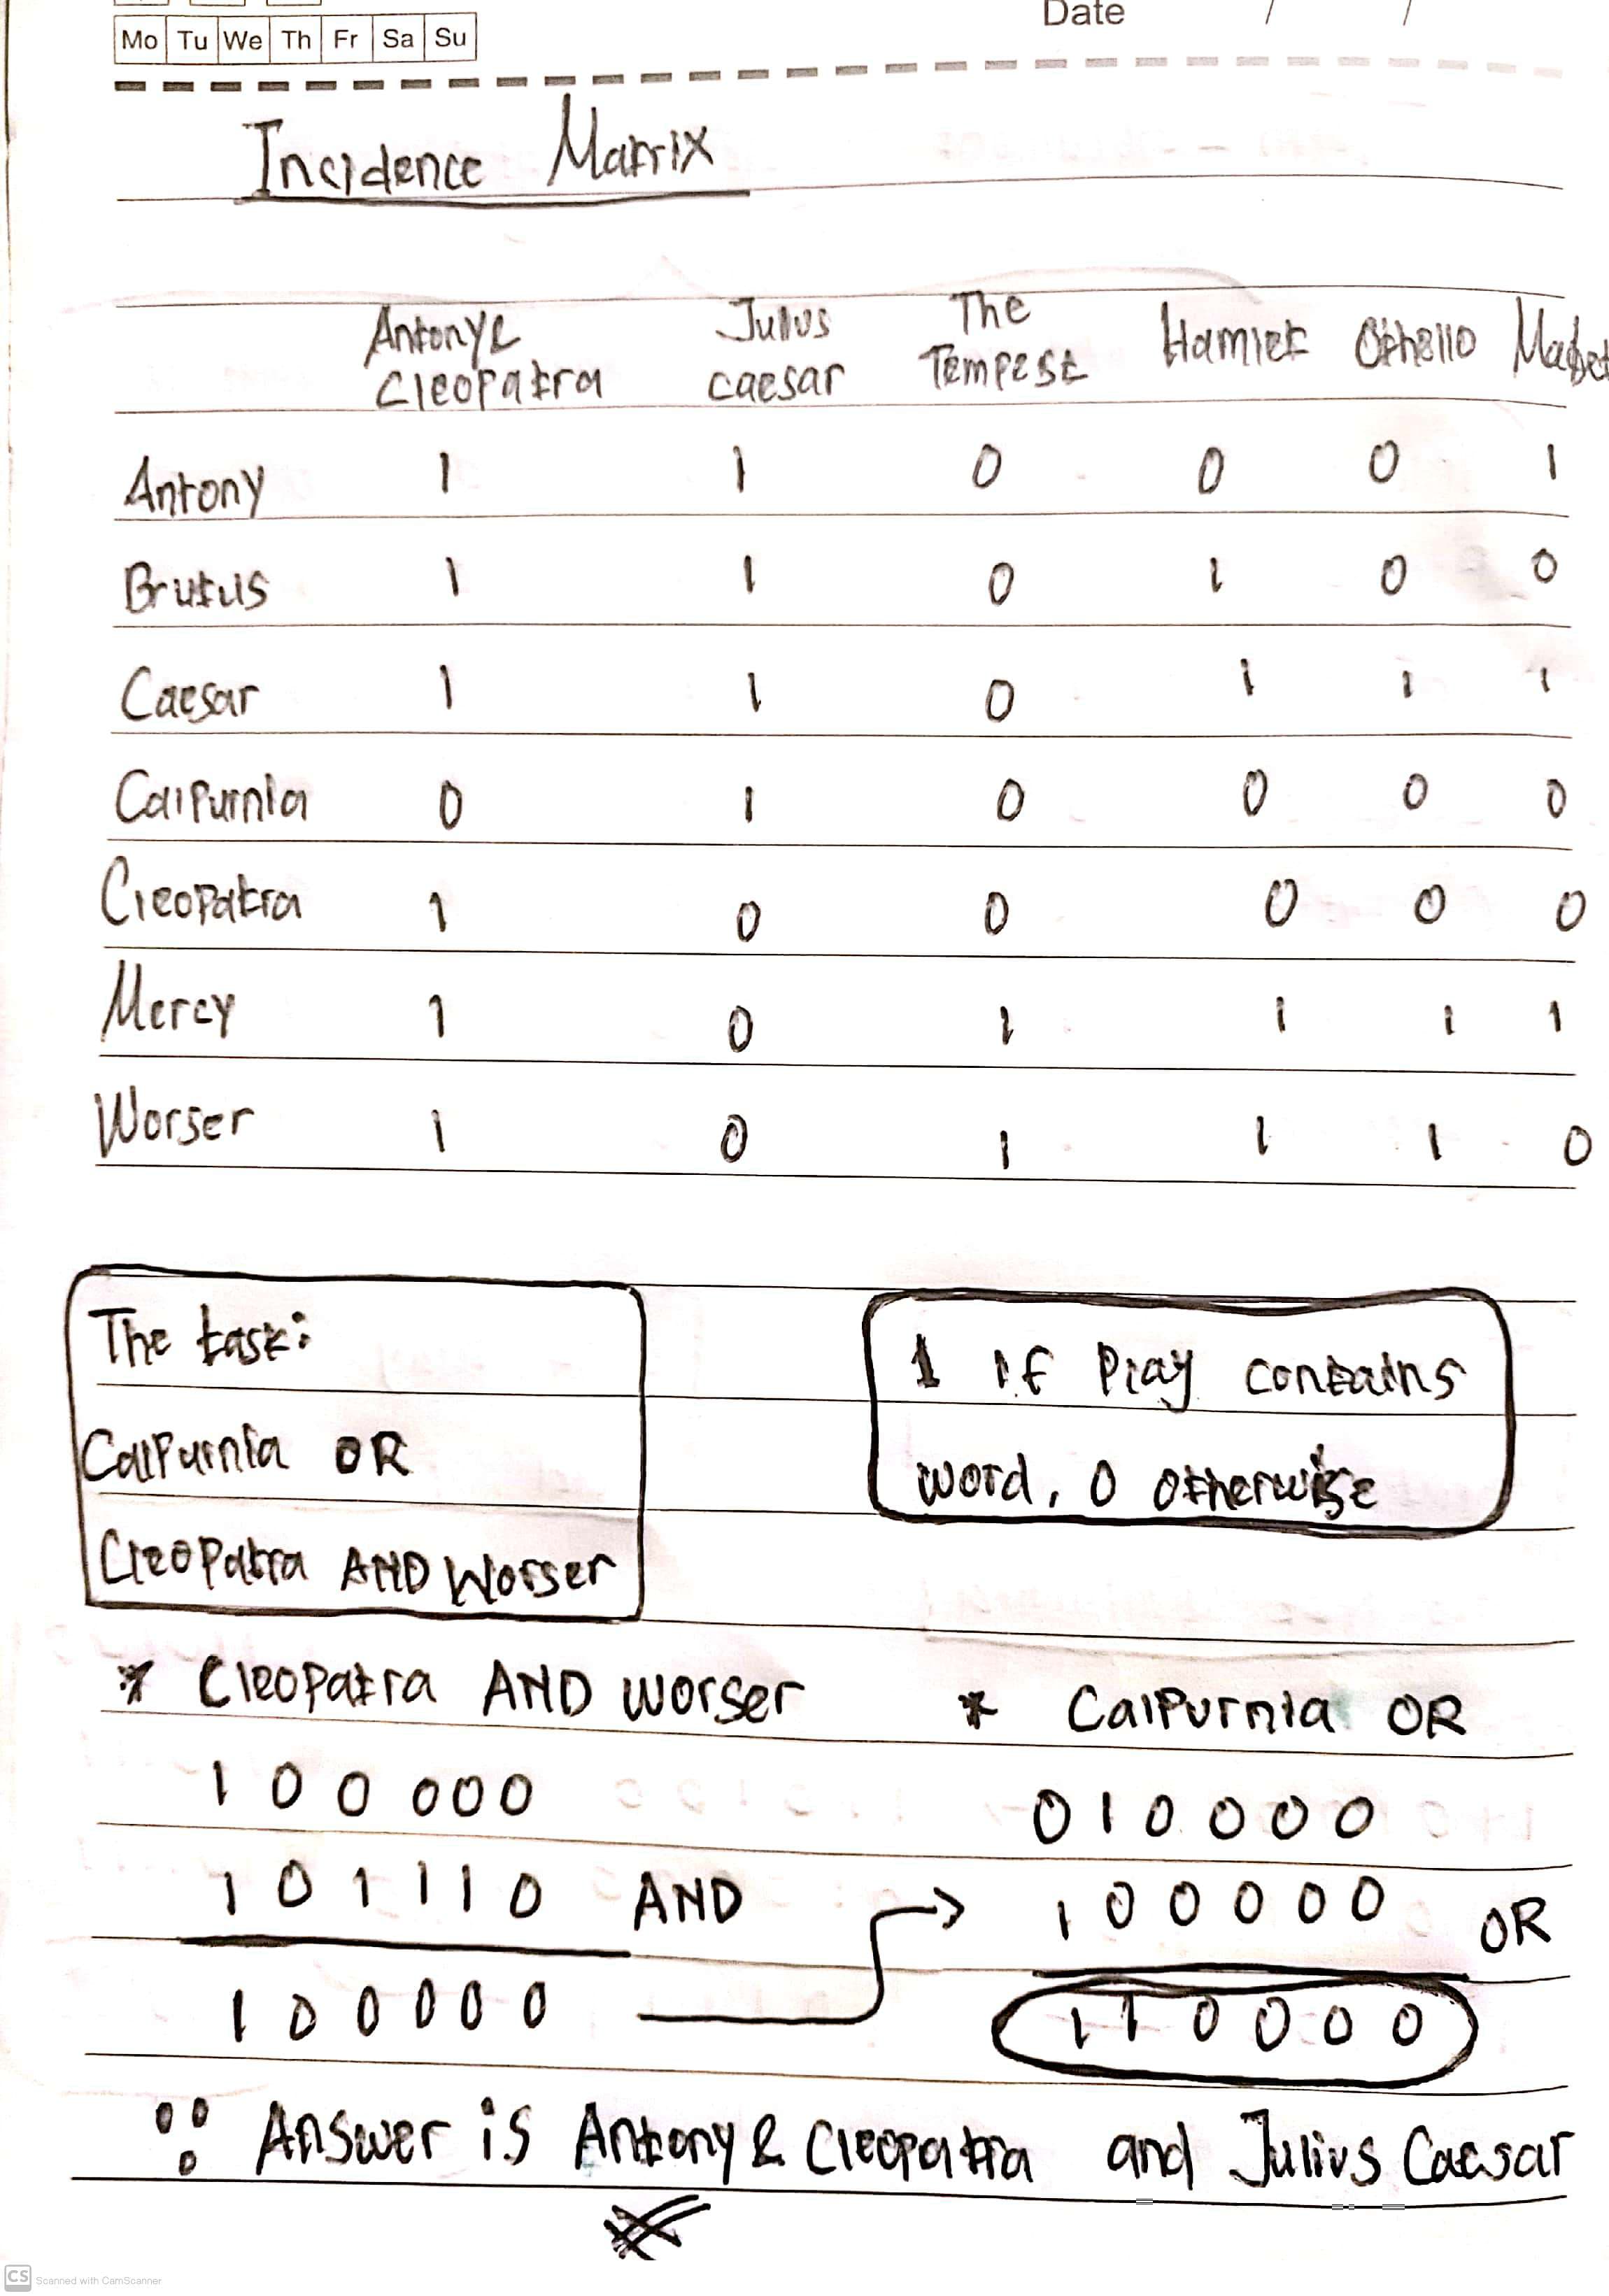 Date / /
Mo Tu We Th Fr Sa Su
Incidence Matrix
Antony & Cleopatra Julus caesar The Tempest Hamlet Othello Macbet
Antony 1 1 0 0 0 1
Brutus 1 1 0 1 0 0
Caesar 1 1 0 1 1 1
Calpurnia 0 1 0 0 0 0
Cleopatra 1 0 0 0 0 0
Mercy 1 0 1 1 1 1
Worser 1 0 1 1 1 0
The task:
Calpurnia OR
Cleopatra AND Worser
1 if Play contains
word, 0 otherwise
* Cleopatra AND worser
1 0 0 0 0 0
1 0 1 1 1 0 AND
1 0 0 0 0 0
* Calpurnia OR
0 1 0 0 0 0
1 0 0 0 0 0 OR
1 1 0 0 0 0
Answer is Antony & Cleopatra and Julius Caesar
CS Scanned with CamScanner